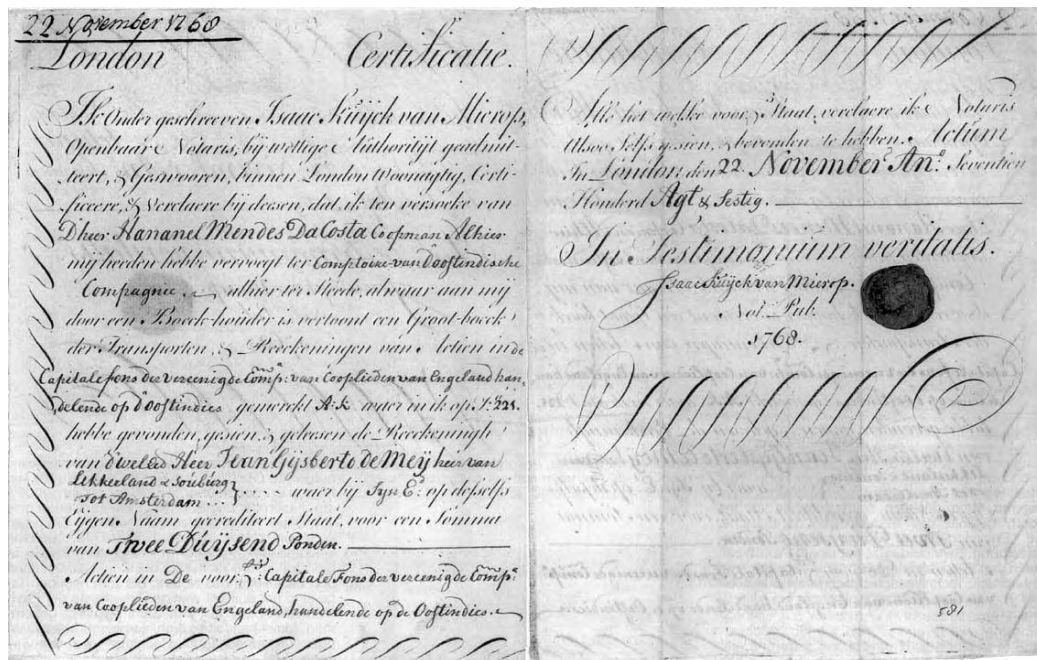 22 November 1768
London Certificatie.
Ik Ondergeschreeven Isaac Kuÿck van Mierop,
Openbaar Notaris, bij wettige Authoritijt geadmit-
teert, & Geswooren, binnen London Woonagtig, Certi-
ficeere, & Verclaere bij deesen, dat ik ten versoeke van
D'heer Hananel Mendes Da Costa Coopman Alhier
mij heeden hebbe vervoegt ter Comptoire van d'oostindische
Compagnie, alhier ter Steede, alwaar aan mij
door een Boeck-houder is vertoont een Groot-boeck
der Transporten, & Reeckeningen van Actien in de
Capitale fons der vereenigde Compe. van Cooplieden van Engeland han,
delende op d'Oostindies gemerckt A:k waer in ik op f:221.
hebbe gevonden, gesien, & geleesen de Reeckeningh
van d'weled Heer Jean Gijsberto de Meÿ heer van
Lekkerland & Souburg
Tot Amsterdam ... waer bij Syn E. op deszelfs
Eijgen Naam gecrediteert Staat, voor een Somma
van Twee Duÿsend Ponden.
Actien in De voors: Capitale Fons der vereenigde Compe.
van Cooplieden van Engeland, handelende op de Oostindies.
Alle het welke voors. Staat, verclaere ik Notaris
Alsoo Selfs gesien, & bevonden te hebben. Actum
In London den 22. November Ano. Seventien
Honderd Agt & Sestig.
In Testimonium veritatis.
Isaac Kuÿck van Mierop.
Not. Pub.
1768.
581